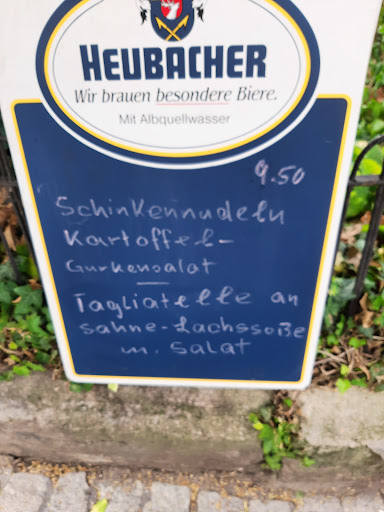 HEUBACHER
Wir brauen besondere Biere.
Mit Albquellwasser
9.50
Schinkennudeln
Kartoffel-
Gurkensalat
Tagliatelle an
Sahne-Lachssoße
m. Salat